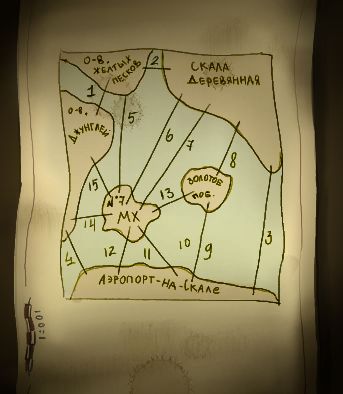 О-В.
ЖЕЛТЫХ
ПЕСКОВ
2
СКАЛА
ДЕРЕВЯННАЯ
1
О-В.
ДЖУНГЛЕЙ
5
6
7
8
15
№7
МХ
13
ЗОЛОТОЕ
ПОБ.
14
4
12
11
10
9
3
АЭРОПОРТ-НА-СКАЛЕ
1:001